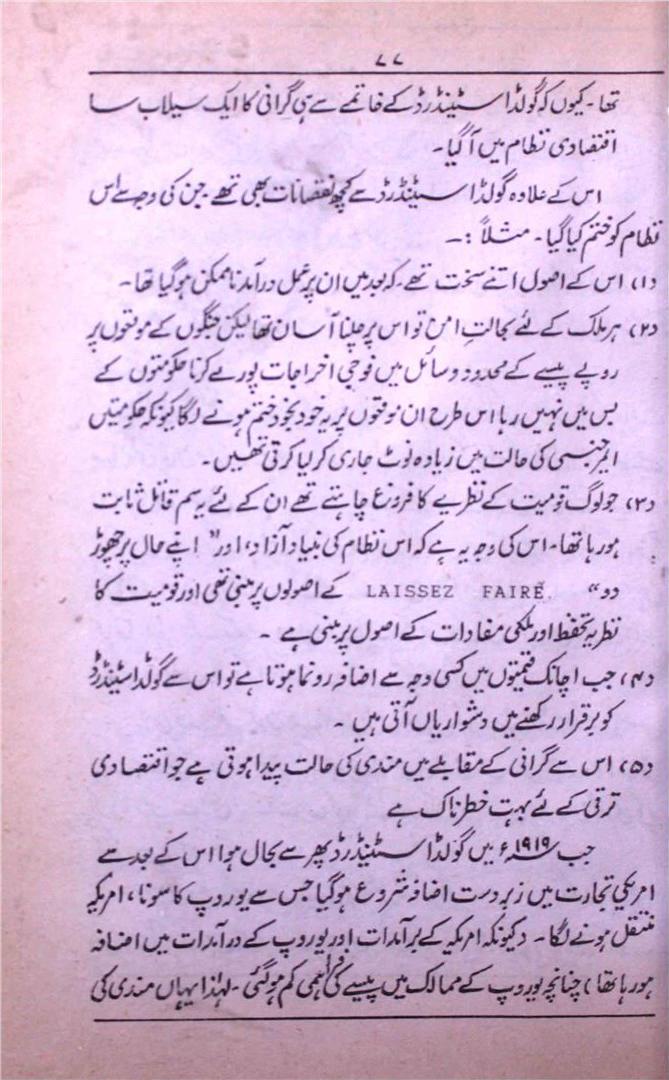 ۷۷
تھا۔ کیوں کہ گولڈ اسٹینڈرڈ کے خاتمے سے ہی گرانی کا ایک سیلاب سا
اقتصادی نظام میں آگیا۔
اس کے علاوہ گولڈ اسٹینڈرڈ سے کچھ نقصانات بھی تھے۔ جن کی وجہ سے اس
نظام کو ختم کیا گیا۔ مثلاً :۔
(۱) اس کے اصول اتنے سخت تھے۔ کہ بعد میں ان پر عمل درآمد ناممکن ہوگیا تھا۔
(۲) ہر ملک کے لئے بحالتِ امن تو اس پر چلنا آسان تھا لیکن جنگوں کے موقعوں پر
روپے پیسے کے محدود وسائل میں فوجی اخراجات پورے کرنا حکومتوں کے
بس میں نہیں رہا اس طرح ان موقعوں پر یہ خود بخود ختم ہونے لگا کیونکہ حکومتیں
ایمرجنسی کی حالت میں زیادہ نوٹ جاری کر لیا کرتی تھیں۔
(۳) جو لوگ قومیت کے نظریے کا فروغ چاہتے تھے ان کے لئے یہ سم قاتل ثابت
ہو رہا تھا۔ اس کی وجہ یہ ہے کہ اس نظام کی بنیاد آزاد، اور "اپنے حال پر چھوڑ
دو" LAISSEZ FAIRE. کے اصولوں پر مبنی تھی اور قومیت کا
نظریہ تحفظ اور ملکی مفادات کے اصول پر مبنی ہے۔
(۴) جب اچانک قیمتوں میں کسی وجہ سے اضافہ رونما ہوتا ہے تو اس سے گولڈ اسٹینڈرڈ
کو برقرار رکھنے میں دشواریاں آتی ہیں۔
(۵) اس سے گرانی کے مقابلے میں مندی کی حالت پیدا ہوتی ہے جو اقتصادی
ترقی کے لئے بہت خطرناک ہے
جب ۱۹۱۹ء میں گولڈ اسٹینڈرڈ پھر سے بحال ہوا اس کے بعد سے
امریکی تجارت میں زبردست اضافہ شروع ہوگیا جس سے یوروپ کا سونا، امریکہ
منتقل ہونے لگا۔ (کیونکہ امریکہ کے برآمدات اور یوروپ کے درآمدات میں اضافہ
ہو رہا تھا) چنانچہ یوروپ کے ممالک میں پیسے کی فراہمی کم ہوگئی۔ لہٰذا یہاں مندی کی